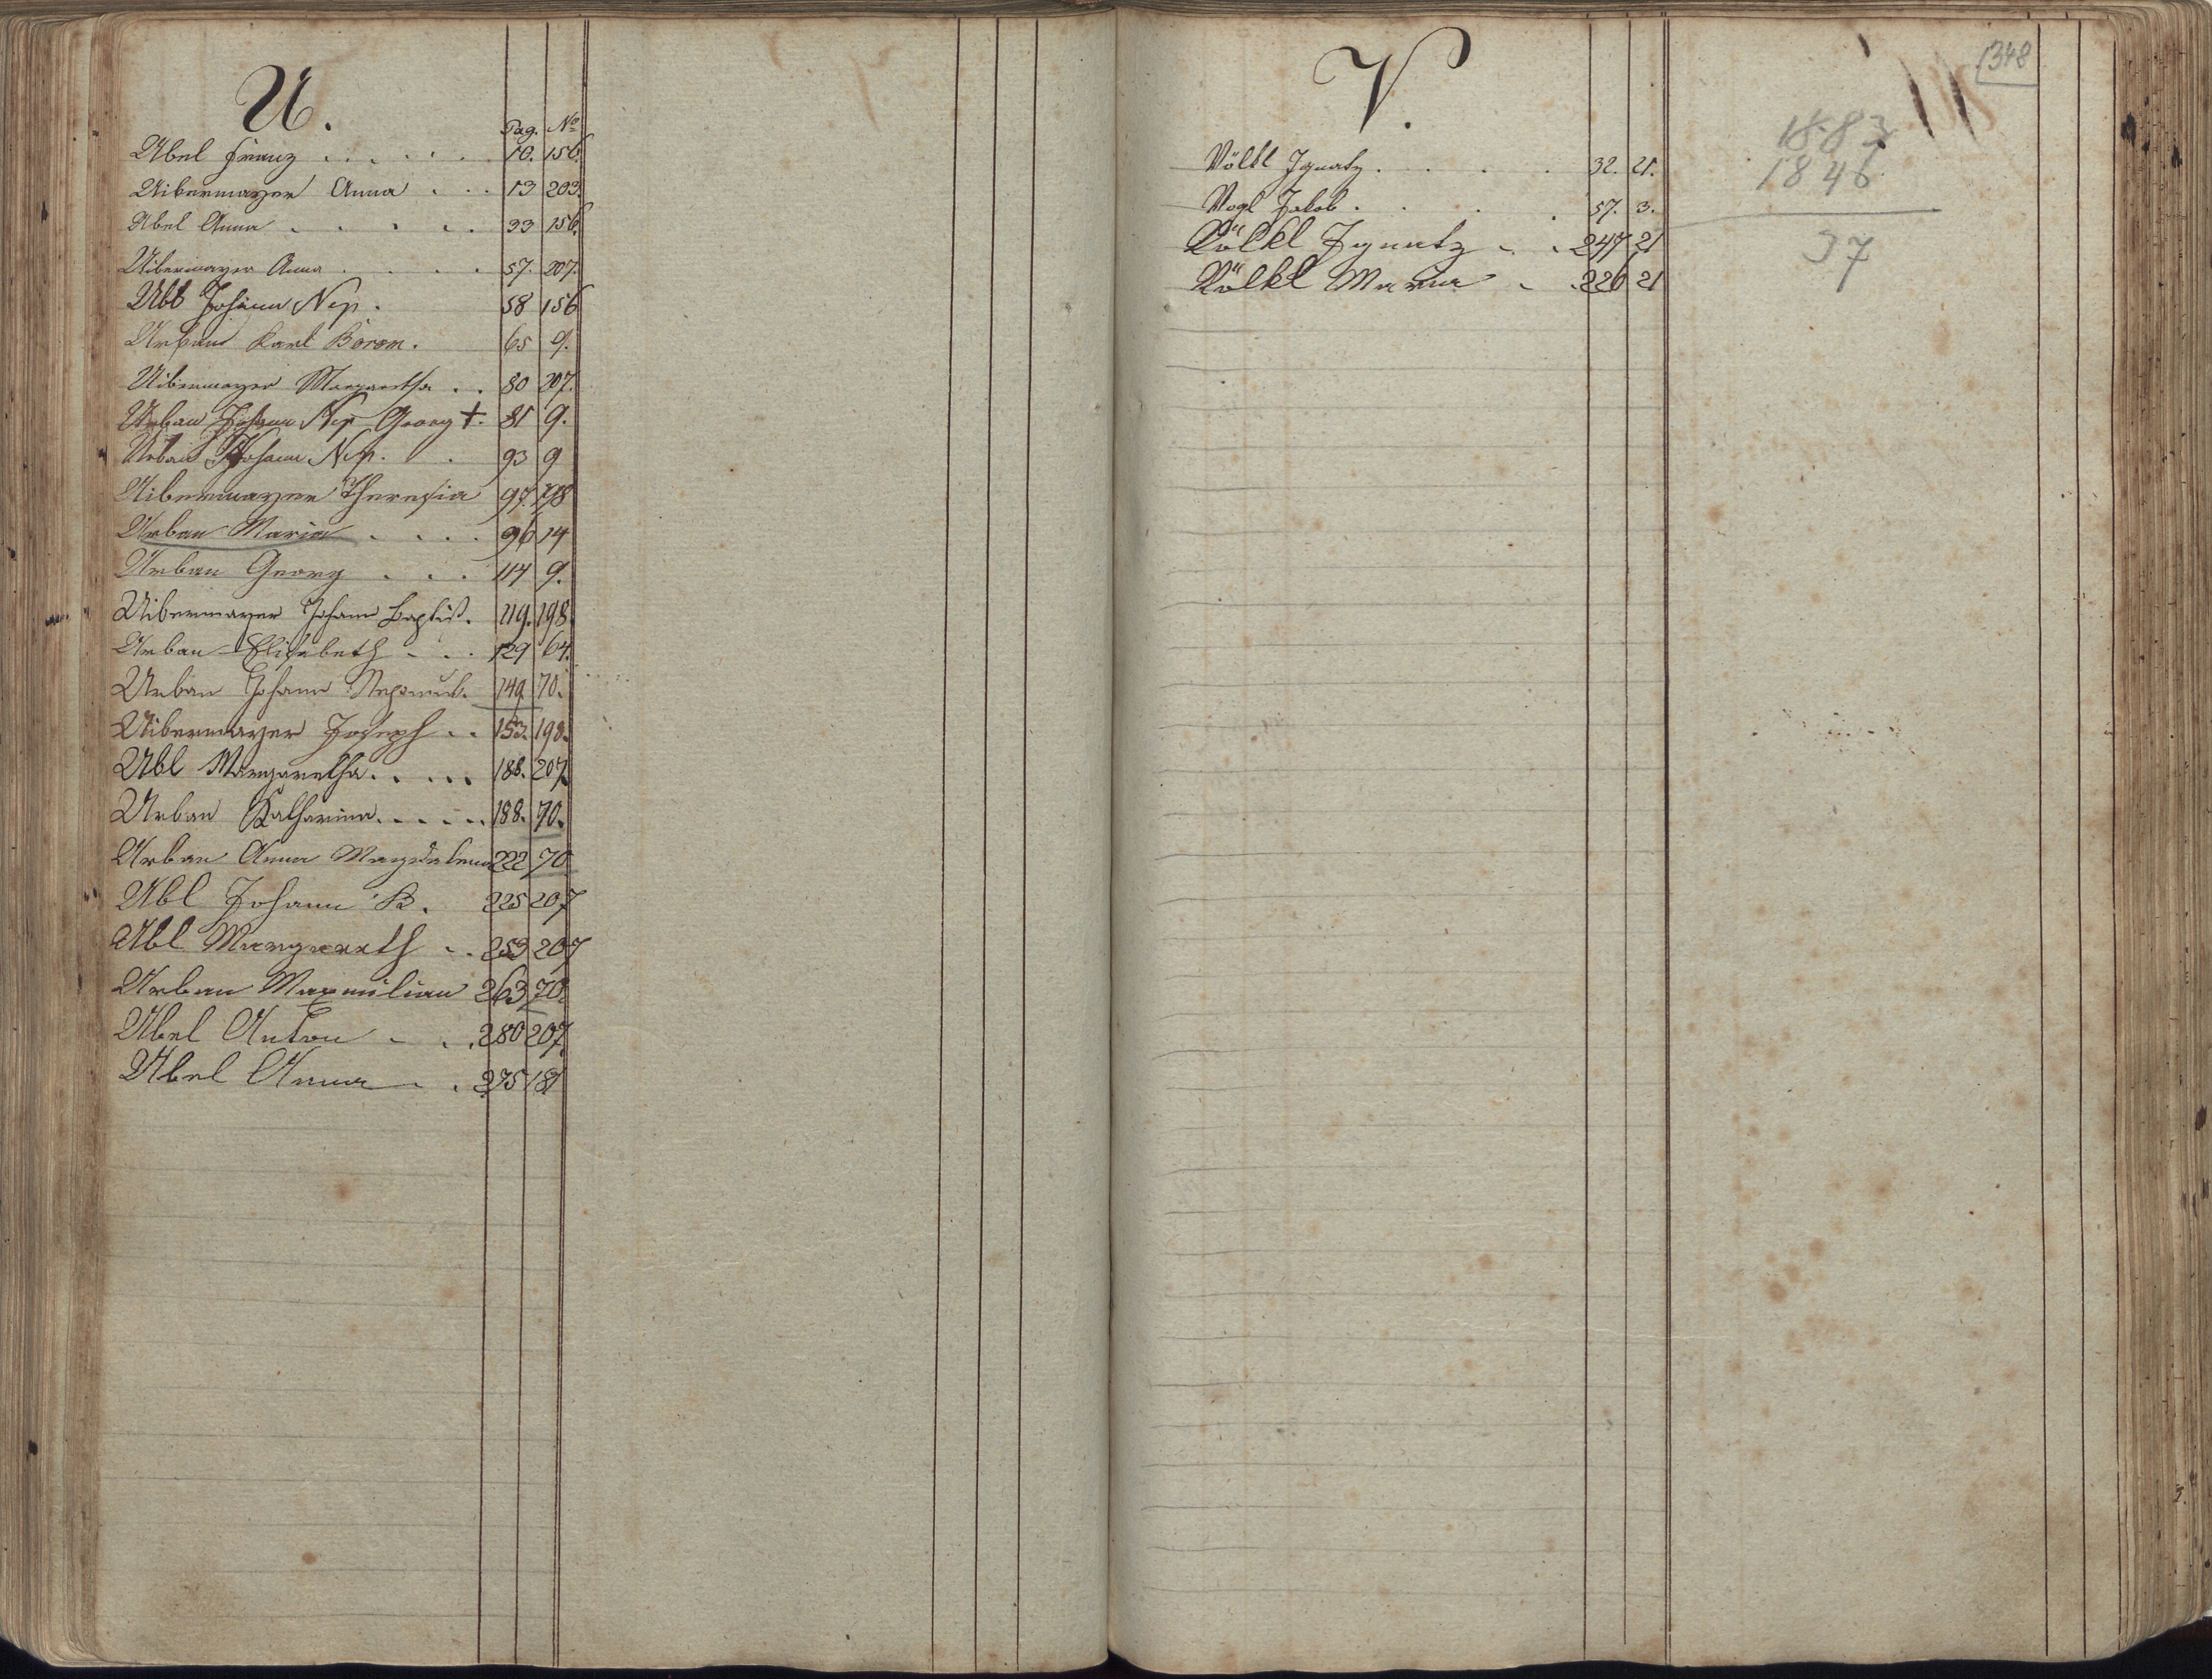 U.
Pag. No
Ubel Franz . . . . . 10. 156.
Uibermayer Anna . . . 13 203.
Ubel Anna . . . . . 33 156.
Uibermayer Anna . . . . 57. 207.
Ubl Johann Nep. 58 156
Urban Karl Borom. 65 9.
Uibermayer Margaretha . . 80 207.
Urban Johann Nep Georg +. 81 9.
Urban Johann Nep. . . 93 9
Uibermayer Theresia 97. 198
Urban Maria . . . . 96 14
Urban Georg . . . 114 9.
Uibermayer Johann Baptist. 119. 198.
Urban Elisabeth . . . 129 64.
Urban Johann Nepomuk. 149 70.
Uibermayer Joseph . . 153. 198.
Ubl Margaretha . . . . . 188. 207.
Urban Katharina . . . . . . 188. 70.
Urban Anna Magdalena 222 70
Ubl Johann B. 225 207
Ubl Margareth . . 253 207
Urban Maxmilian 263 70.
Ubel Anton . . . 280 207.
Ubel Anna . . 275 181
V.
Völkl Ignatz . . . . . 32. 21.
Vogl Jakob . . . . 57. 3.
Völkl Ignatz . . 247 21
Völkl Maria . . 226 21
348
1883
1846
37